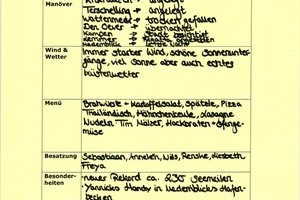 Manöver
Terschelling → angelegt
Wattenmeer → trocken gefallen
Den Oever → übernachtet
Kampen → Stadt besichtigt
Lemmer →
→ letzte Nacht
Wind &
Wetter
Immer starker Wind, schöne Sonnenunter-
gänge, viel Sonne aber auch echtes
Küstenwetter
Menü
Bratwurst + Kartoffelsalat, Spätzle, Pizza
Thailändisch, Hähnchenkeule, Lasagne
Nudeln Tim Mälzer, Hackbraten + Ofenge-
müse
Besatzung
Sebastiaan, Annelien, Nils, Renske, Liesbeth,
Freya
Besonder-
heiten
- neuer Rekord ca. 230 Seemeilen
- Yannicks Handy in Hafen-
becken